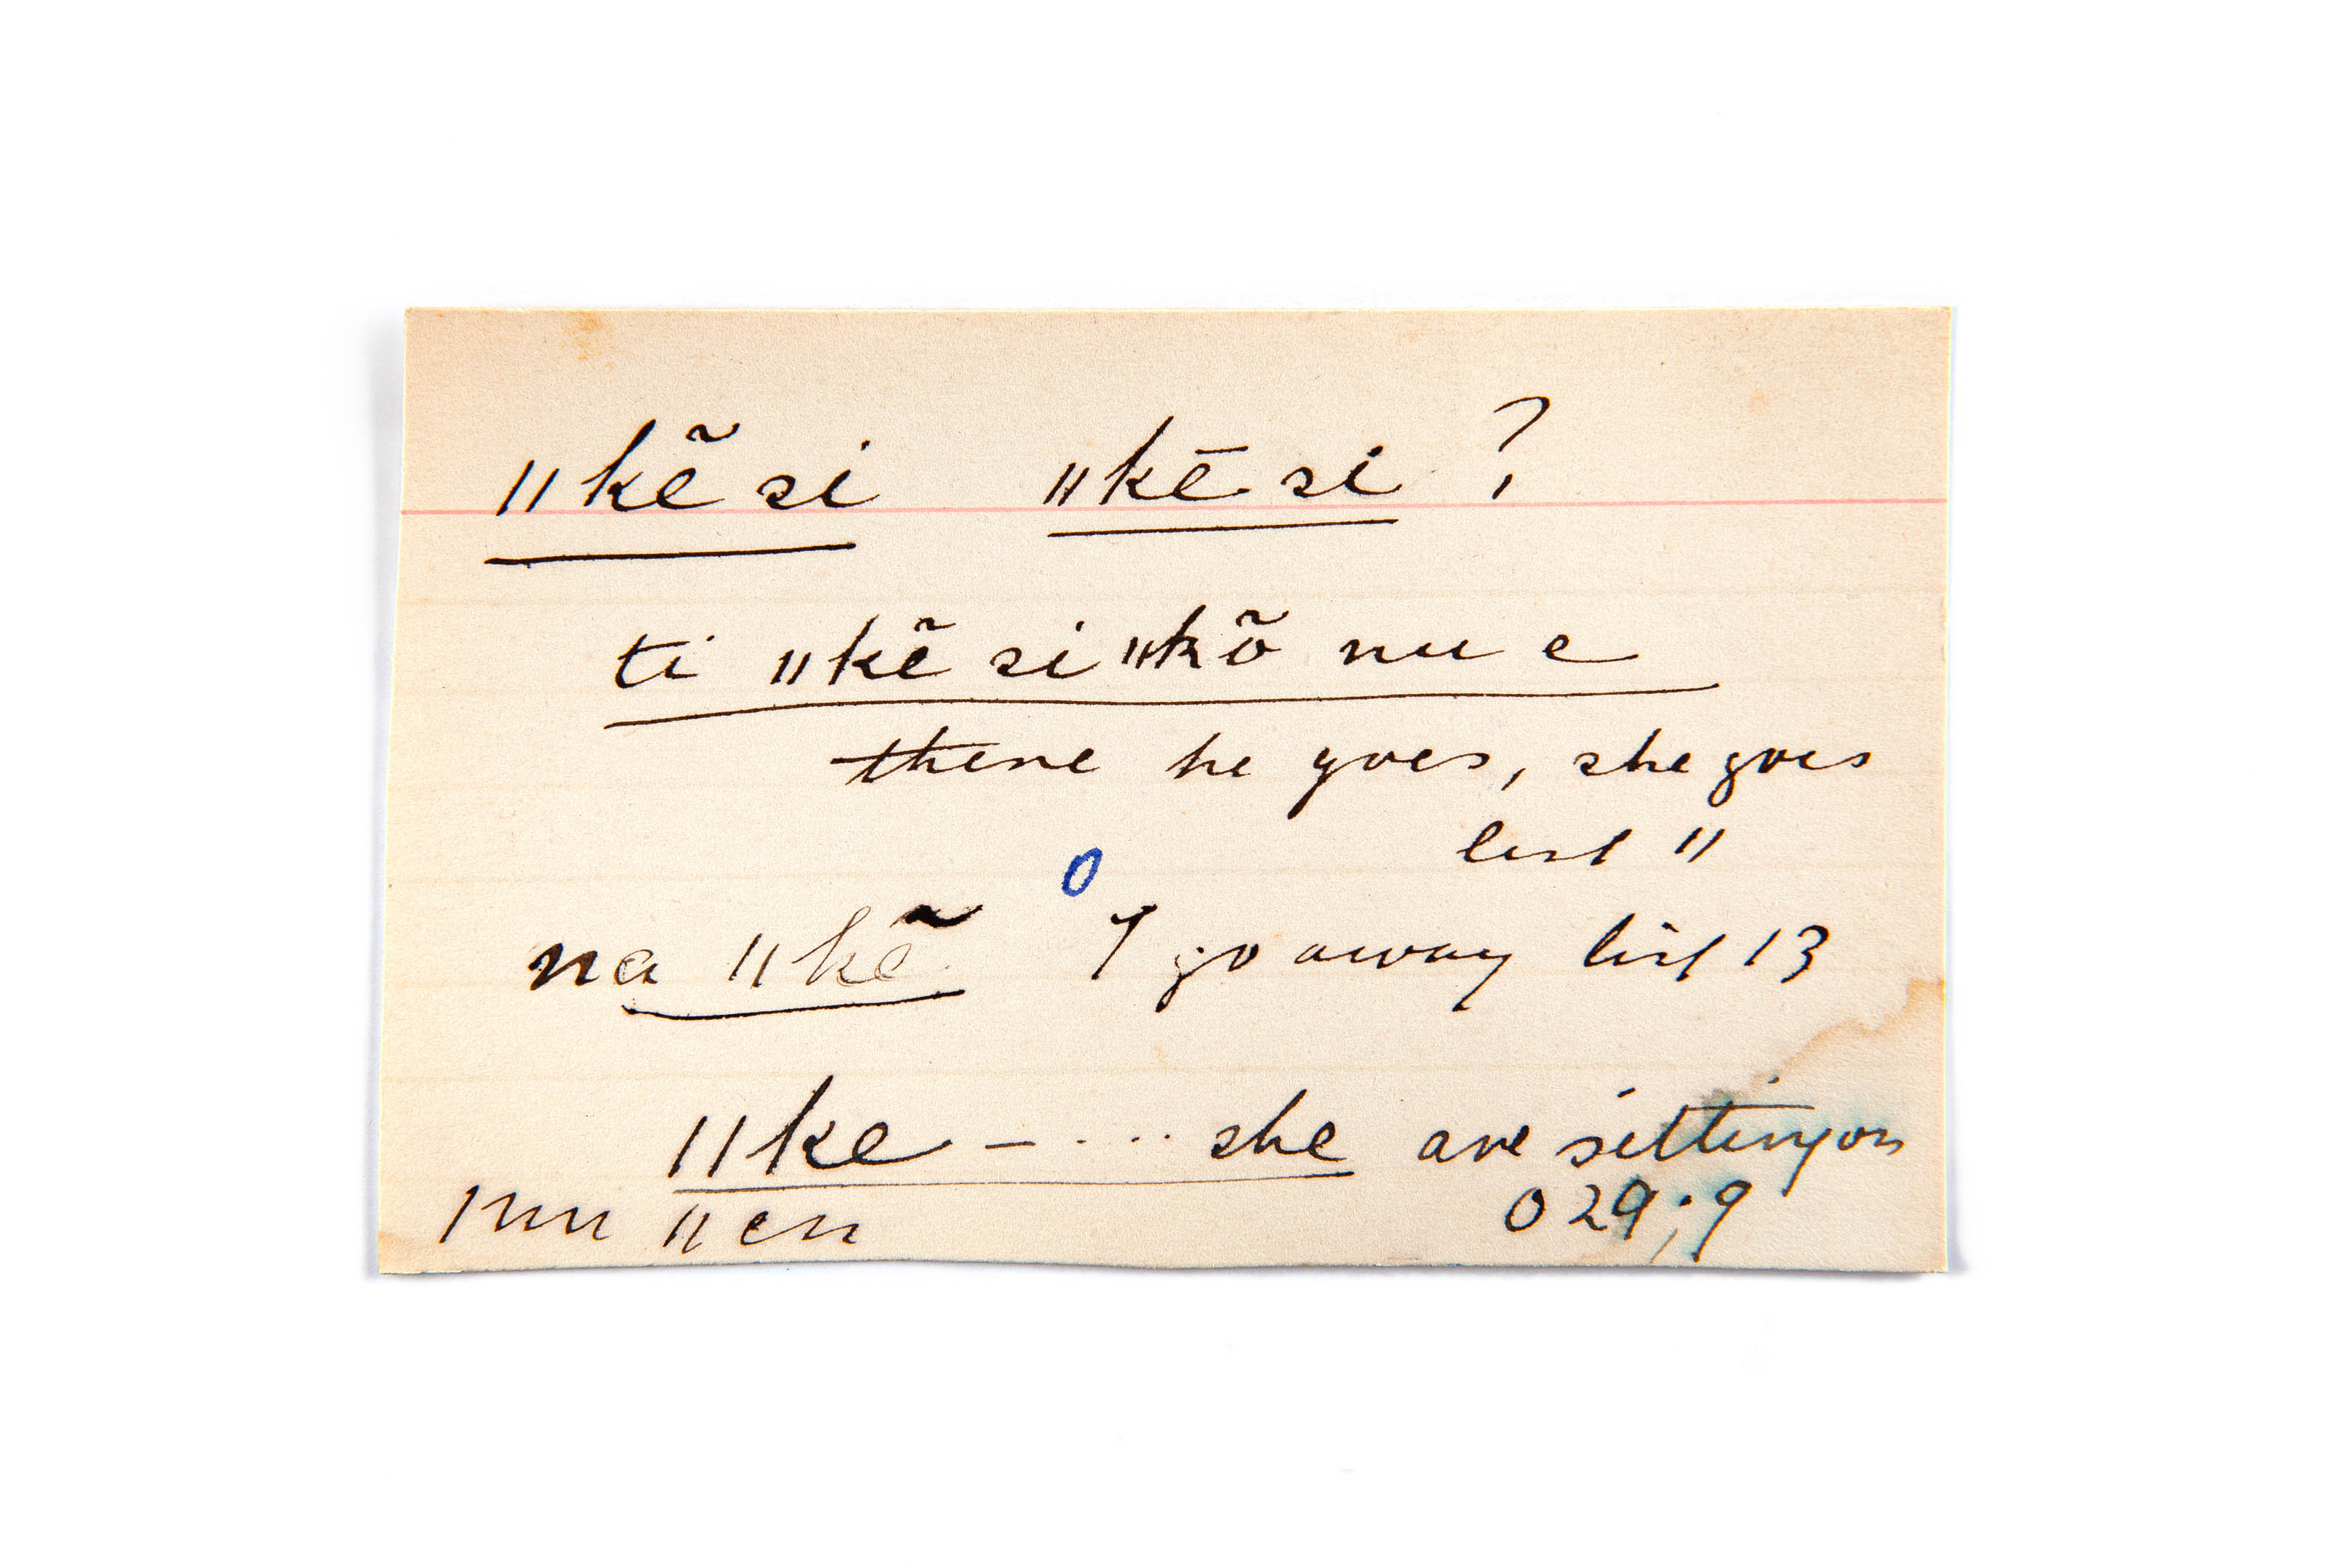 ǁkẽ si ǁkē si ?
ti ǁkẽ si ǁkõ nu e
there he goes, she goes
list 11
0
na ǁkẽ I go away list 13
ǁke – . . . she are sitting on
ǀnu ǁen 029;9